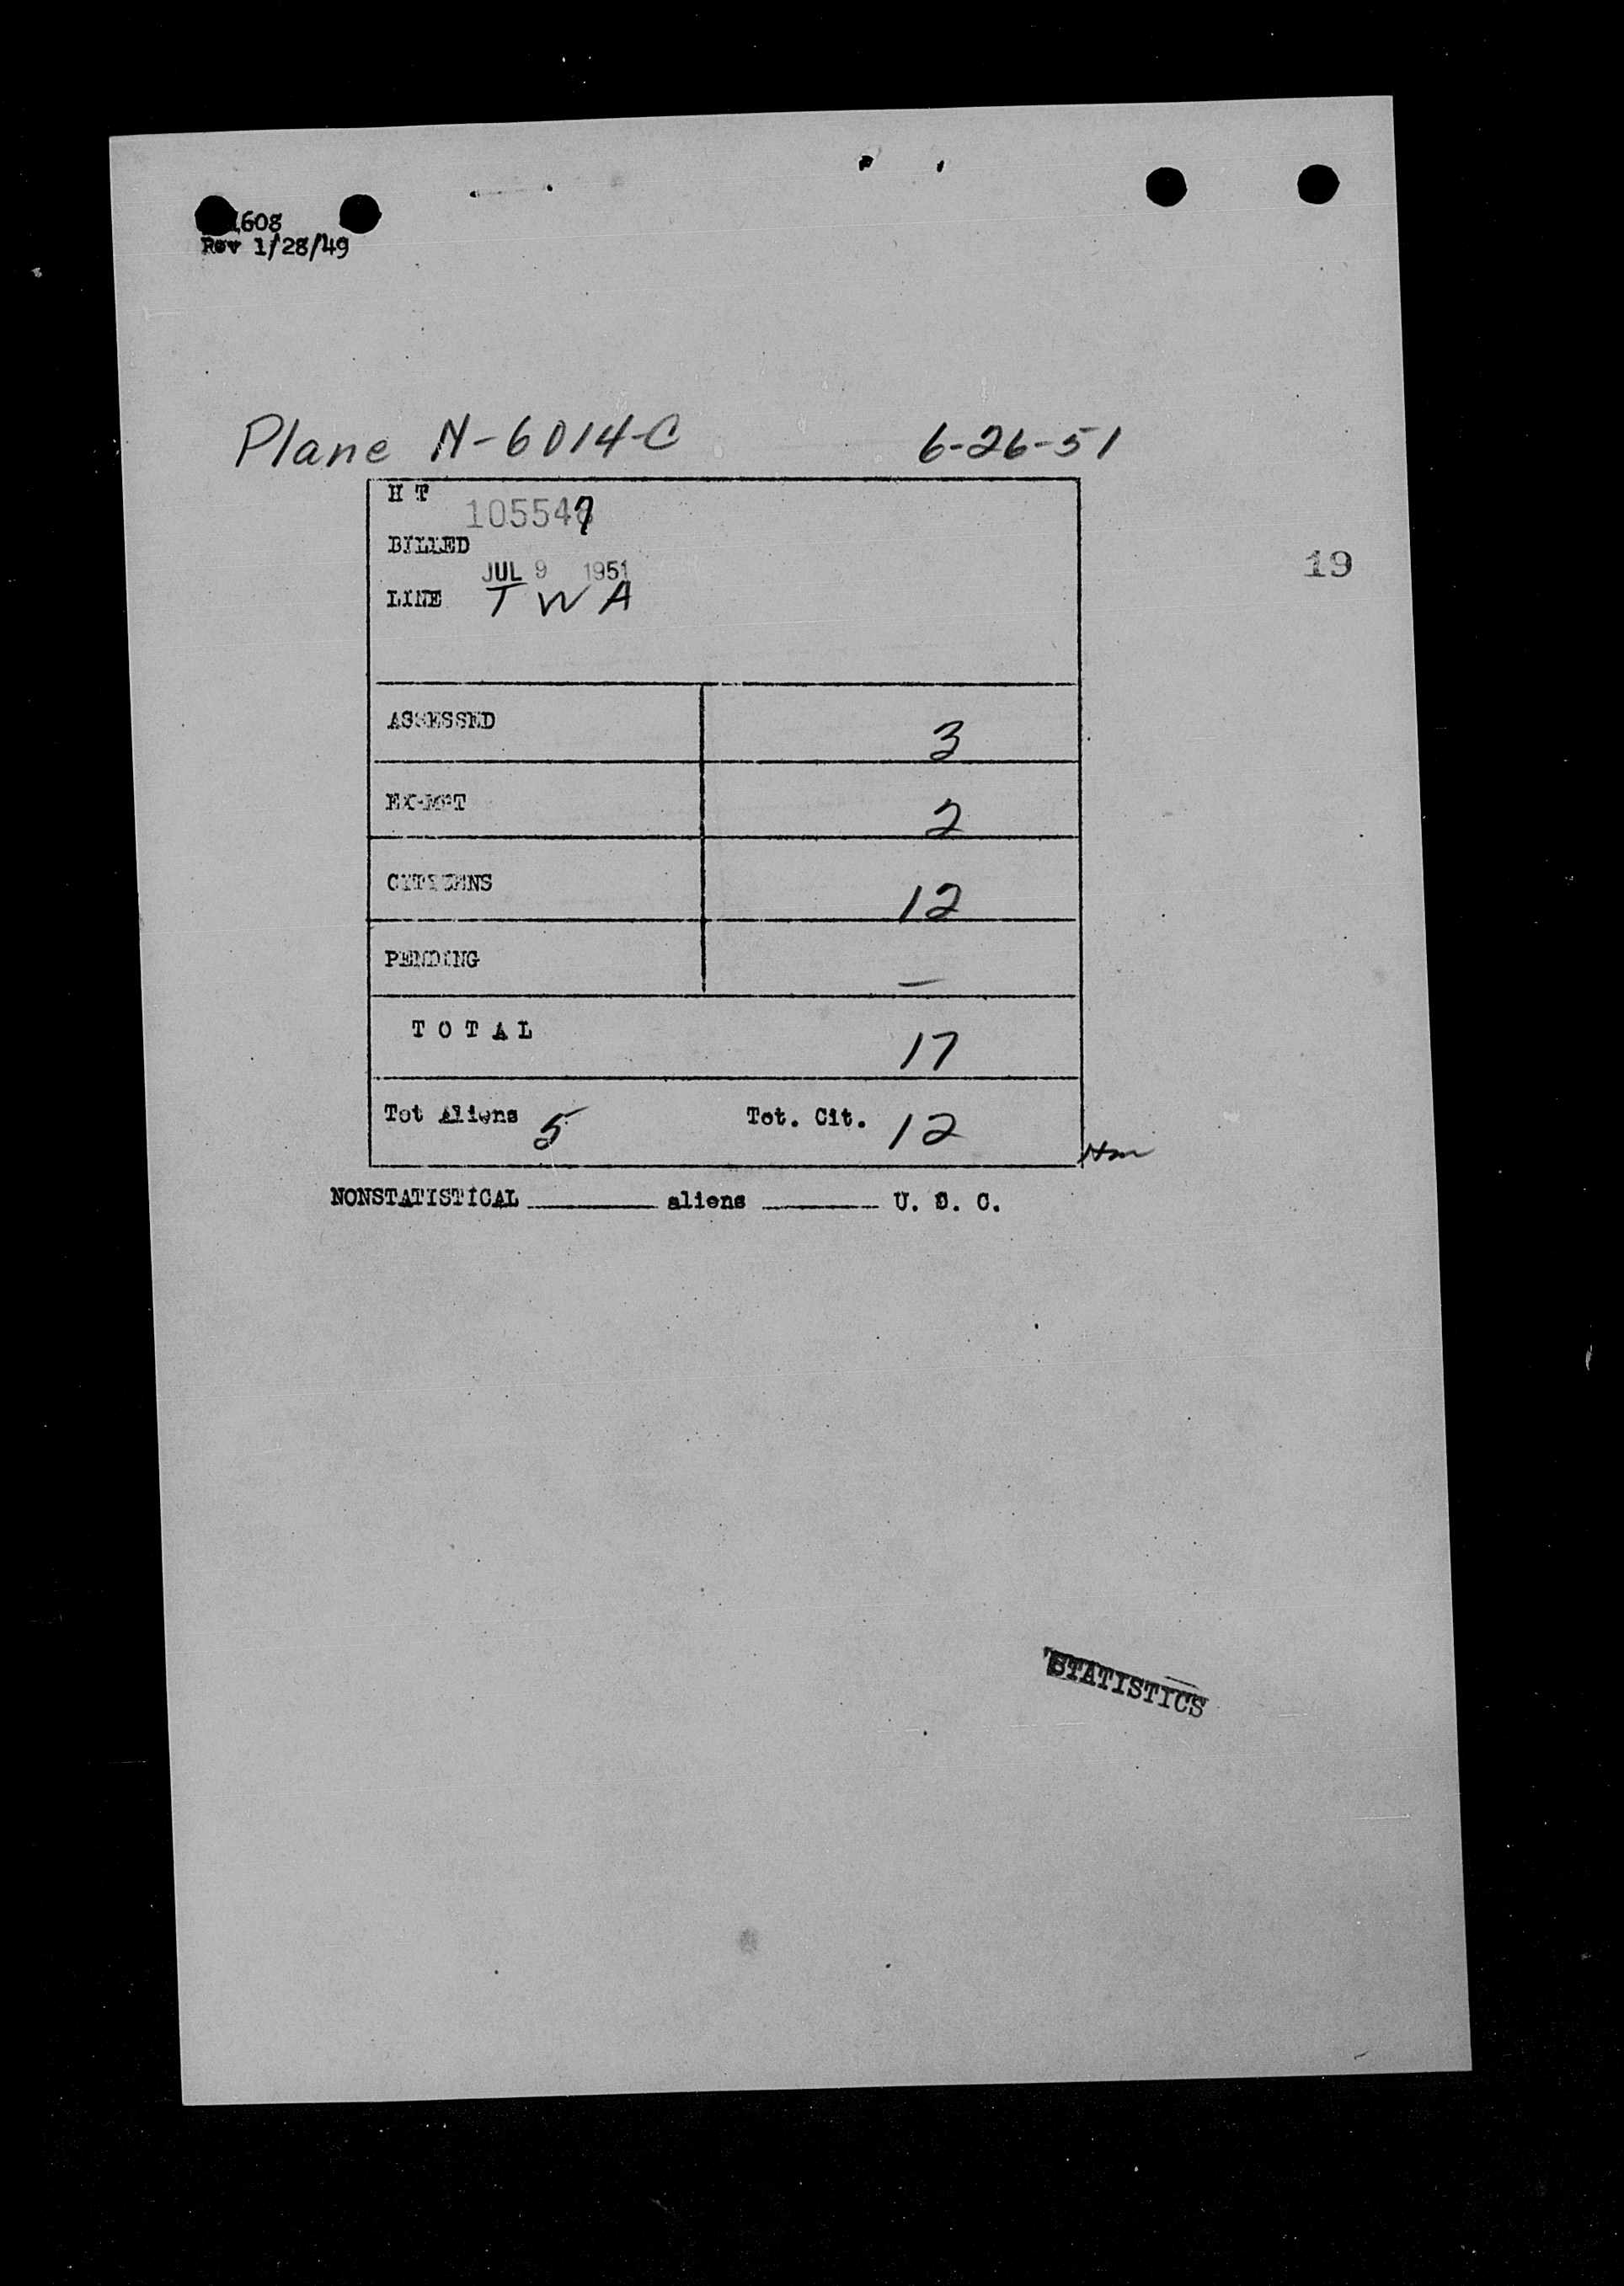 1608
Rev 1/28/49
Plane N-6014-C 6-26-51
H T
105547
BILLED
JUL 9 1951
LINE T W A
19
ASSESSED 3
EXEMPT 2
CITIZENS 12
PENDING —
T O T A L 17
Tot Aliens 5 Tot. Cit. 12
NONSTATISTICAL ______ aliens ______ U. S. C.
STATISTICS